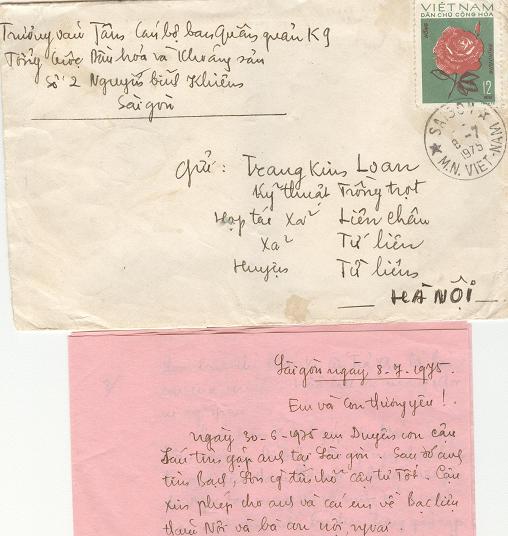 Trương văn Tâm Cán bộ ban Quân quản K9
Tổng cục Dầu hoá và Khoáng sản
Số 2 Nguyễn bỉnh Khiêm
Sài gòn
VIỆT NAM
DÂN CHỦ CỘNG HÒA
12
SAIGON
8-7
1975
M.N. VIET-NAM
Gửi: Trang kim Loan
Kỹ thuật Trồng trọt
Hợp tác Xã Liên châu
Xã Tứ liên
Huyện Từ liêm
HÀ NỘI
Sài gòn ngày 8-7-1975.
Em và Con thương yêu!
Ngày 30-6-1975 em Duyên con cậu
Sáu tìm gặp anh tại Sài gòn. Sau đó anh
tìm Bạch, chỗ cậu tư Tốt. Cậu
xin phép cho anh và các em về Bạc liêu
thăm Nội và bà con nội, ngoại.